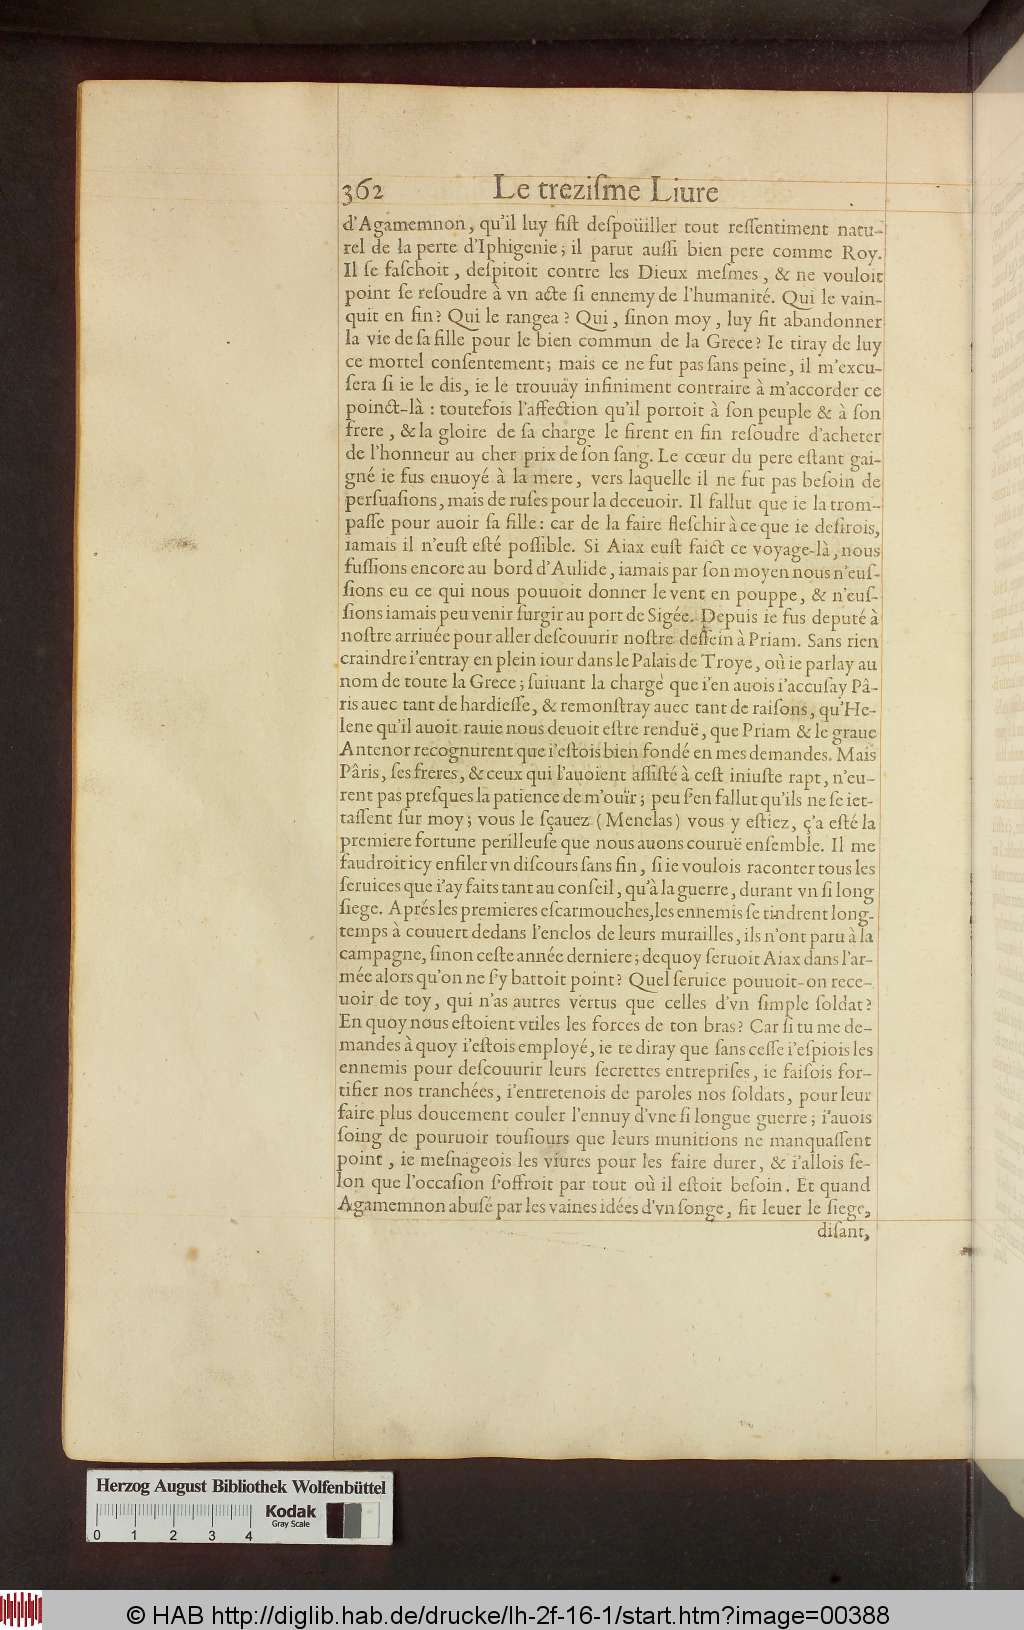 362 Le treziſme Liure
d'Agamemnon, qu'il luy fiſt deſpoüiller tout reſſentiment natu-
rel de la perte d'Iphigenie; il parut auſſi bien pere comme Roy.
Il ſe faſchoit, deſpitoit contre les Dieux meſmes, & ne vouloit
point ſe reſoudre à vn acte ſi ennemy de l'humanité. Qui le vain-
quit en fin? Qui le rangea? Qui, ſinon moy, luy fit abandonner
la vie de ſa fille pour le bien commun de la Grece? Ie tiray de luy
ce mortel conſentement; mais ce ne fut pas ſans peine, il m'excu-
ſera ſi ie le dis, ie le trouuäy infiniment contraire à m'accorder ce
poinct-là: toutefois l'affection qu'il portoit à ſon peuple & à ſon
frere, & la gloire de ſa charge le firent en fin reſoudre d'acheter
de l'honneur au cher prix de ſon ſang. Le cœur du pere eſtant gai-
gné ie fus enuoyé à la mere, vers laquelle il ne fut pas beſoin de
perſuaſions, mais de ruſes pour la deceuoir. Il fallut que ie la trom-
paſſe pour auoir ſa fille: car de la faire fleſchir à ce que ie deſirois,
iamais il n'euſt eſté poſſible. Si Aiax euſt faict ce voyage-là, nous
fuſſions encore au bord d'Aulide, iamais par ſon moyen nous n'euſ-
ſions eu ce qui nous pouuoit donner le vent en pouppe, & n'euſ-
ſions iamais peu venir ſurgir au port de Sigée. Depuis ie fus deputé à
noſtre arriuée pour aller deſcouurir noſtre deſſein à Priam. Sans rien
craindre i'entray en plein iour dans le Palais de Troye, où ie parlay au
nom de toute la Grece; ſuiuant la charge que i'en auois i'accuſay Pâ-
ris auec tant de hardieſſe, & remonſtray auec tant de raiſons, qu'He-
lene qu'il auoit rauie nous deuoit eſtre renduë, que Priam & le graue
Antenor recognurent que i'eſtois bien fondé en mes demandes. Mais
Pâris, ſes freres, & ceux qui l'auoient aſſiſté à ceſt iniuſte rapt, n'eu-
rent pas preſques la patience de m'ouïr; peu ſ'en fallut qu'ils ne ſe iet-
taſſent ſur moy; vous le ſçauez (Menelas) vous y eſtiez, ç'a eſté la
premiere fortune perilleuſe que nous auons couruë enſemble. Il me
faudroit icy enfiler vn diſcours ſans fin, ſi ie voulois raconter tous les
ſeruices que i'ay faits tant au conſeil, qu'à la guerre, durant vn ſi long
ſiege. Aprés les premieres eſcarmouches, les ennemis ſe tindrent long-
temps à couuert dedans l'enclos de leurs murailles, ils n'ont paru à la
campagne, ſinon ceſte année derniere; dequoy ſeruoit Aiax dans l'ar-
mée alors qu'on ne ſ'y battoit point? Quel ſeruice pouuoit-on rece-
uoir de toy, qui n'as autres vertus que celles d'vn ſimple ſoldat?
En quoy nous eſtoient vtiles les forces de ton bras? Car ſi tu me de-
mandes à quoy i'eſtois employé, ie te diray que ſans ceſſe i'eſpiois les
ennemis pour deſcouurir leurs ſecrettes entrepriſes, ie faiſois for-
tifier nos tranchées, i'entretenois de paroles nos ſoldats, pour leur
faire plus doucement couler l'ennuy d'vne ſi longue guerre; i'auois
ſoing de pouruoir touſiours que leurs munitions ne manquaſſent
point, ie meſnageois les viures pour les faire durer, & i'allois ſe-
lon que l'occaſion ſ'offroit par tout où il eſtoit beſoin. Et quand
Agamemnon abuſé par les vaines idées d'vn ſonge, fit leuer le ſiege,
diſant,
Herzog August Bibliothek Wolfenbüttel
Kodak
Gray Scale
0 1 2 3 4
© HAB http://diglib.hab.de/drucke/lh-2f-16-1/start.htm?image=00388